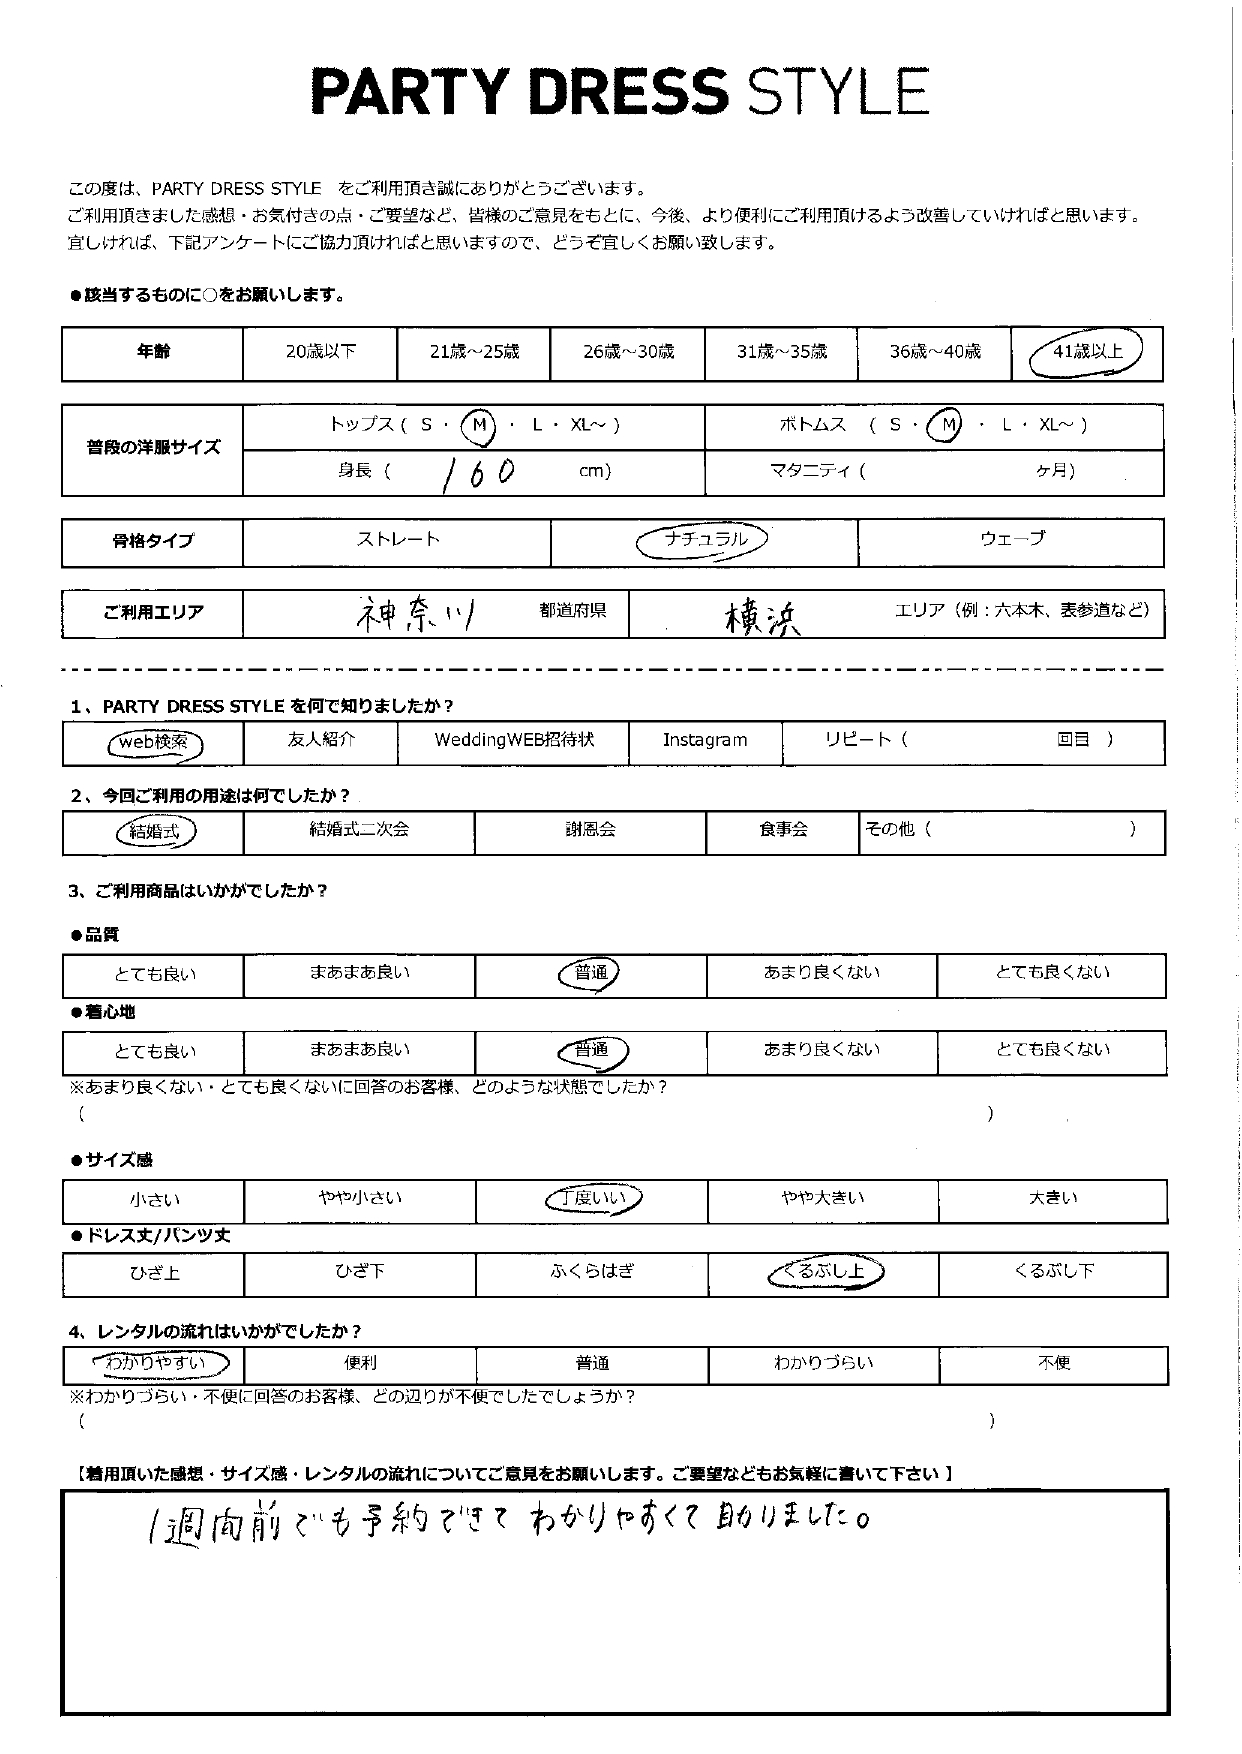 PARTY DRESS STYLE
この度は、PARTY DRESS STYLE をご利用頂き誠にありがとうございます。
ご利用頂きました感想・お気付きの点・ご要望など、皆様のご意見をもとに、今後、より便利にご利用頂けるよう改善していければと思います。
宜しければ、下記アンケートにご協力頂ければと思いますので、どうぞ宜しくお願い致します。
●該当するものに○をお願いします。
年齢 20歳以下 21歳～25歳 26歳～30歳 31歳～35歳 36歳～40歳 41歳以上
普段の洋服サイズ トップス ( S ・ M ・ L ・ XL～ ) ボトムス ( S ・ M ・ L ・ XL～ )
身長 ( 160 cm) マタニティ ( ヶ月)
骨格タイプ ストレート ナチュラル ウェーブ
ご利用エリア 神奈川 都道府県 横浜 エリア（例：六本木、表参道など）
1、PARTY DRESS STYLE を何で知りましたか？
web検索 友人紹介 WeddingWEB招待状 Instagram リピート ( 回目 )
2、今回ご利用の用途は何でしたか？
結婚式 結婚式二次会 謝恩会 食事会 その他 ( )
3、ご利用商品はいかがでしたか？
●品質
とても良い まあまあ良い 普通 あまり良くない とても良くない
●着心地
とても良い まあまあ良い 普通 あまり良くない とても良くない
※あまり良くない・とても良くないに回答のお客様、どのような状態でしたか？
( )
●サイズ感
小さい やや小さい 丁度いい やや大きい 大きい
●ドレス丈/パンツ丈
ひざ上 ひざ下 ふくらはぎ くるぶし上 くるぶし下
4、レンタルの流れはいかがでしたか？
わかりやすい 便利 普通 わかりづらい 不便
※わかりづらい・不便に回答のお客様、どの辺りが不便でしたでしょうか？
( )
【着用頂いた感想・サイズ感・レンタルの流れについてご意見をお願いします。ご要望などもお気軽に書いて下さい 】
1週間前でも予約できて わかりやすくて 助かりました。